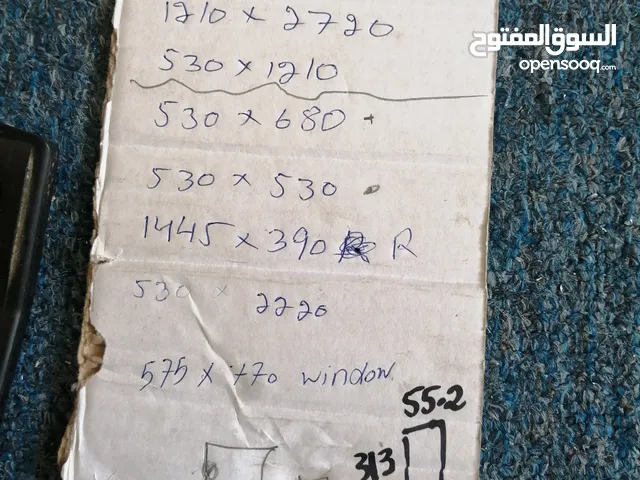 1210 x 2720
السوق المفتوح
opensooq.com
530 x 1210
530 x 680
530 x 530
1445 x 390 R
530 x 2220
575 x 770 window
55.2
313